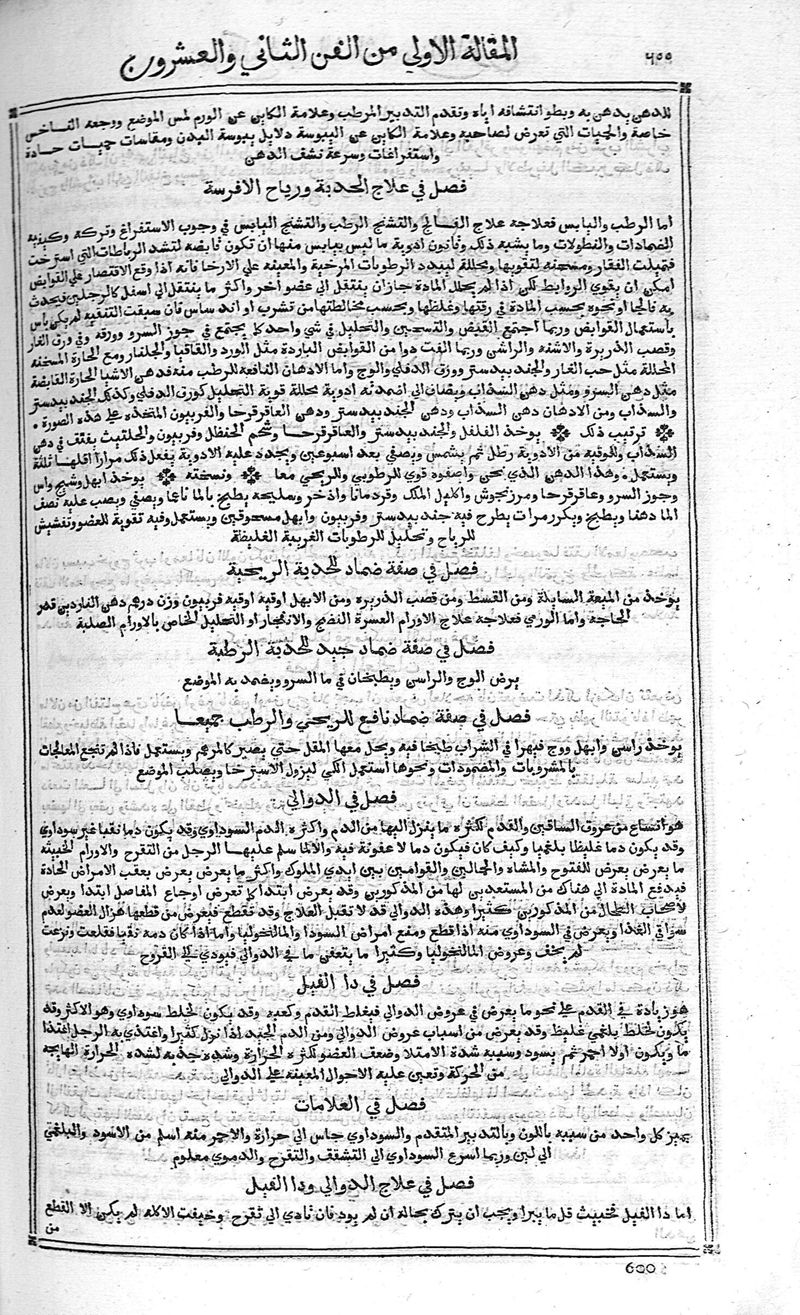 المقالة الاولي من الفن الثاني والعشرون
٦٠٠
للدهن يدهن به وبطو انتشافه اياه وتقدم التدبير المرطب وعلامة الكاين عن الورم لمس الموضع ووجعه الناخس
خاصة والحميات التي تعرض لصاحبه وعلامة الكاين عن اليبوسة دلايل يبوسة البدن ومقاسات حميات حادة
واستفراغات وسرعة نشف الدهن
فصل في علاج الحدبة ورياح الافرسة
اما الرطب واليابس فعلاجه علاج الفالج والتشنج الرطب والتشنج اليابس في وجوب الاستفراغ وتركه وكيفيه
الضمادات والنطولات وما يشبه ذلك وقانون ادوية ما ليس بيابس منها ان تكون قابضه لتشد الرباطات التي استرخت
فتميلت الفقار ومسخنه لتقويها ومحللة ليبدد الرطوبات المرخية والمعينه علي الارخا فانه اذا وقع الاقتصار علي القوابض
امكن ان يقوي الروابط لكن اذا لم يحلل المادة جاز ان ينتقل الي عضو اخر واكثر ما ينتقل الي اسفل كالرجلين فيحدث
به فالجا او نحوه بحسب المادة في رقتها وغلظها وبحسب مخالطتها من تشرب او اند ساس فان سبقت التنقيه لم يكن باس
باستعمال القوابض وربما اجتمع القبض والتسخين والتحليل في شي واحد كما يجتمع في جوز السرو وورقه وفي ورق الغار
وقصب الذريرة والاشنه والراشن وربما الفت دوا من القوابض الباردة مثل الورد والقاقيا والجلنار ومع الحارة المسخنه
المحللة مثل حب الغار والجند بيدستر وورق الدفلي والوج واما الادهان النافعة للرطب منه فدهن الاشيا الحارة القابضة
مثل دهن السرو ومثل دهن السذاب ويضاف الي اضمدته ادوية محللة قوية التحليل كورق الدفلي وكذلك الجند بيدستر
والسذاب ومن الادهان دهن السذاب ودهن الجند بيدستر ودهن العاقرقرحا والفربيون المتخذه علي هذه الصورة
ترتيب ذلك يوخذ الفلفل والجند بيدستر والعاقرقرحا وشحم الحنظل وفربيون والحلتيث يفتق في دهن
السذاب والوقيه من الادوية رطل ثم يشمس ويصفي بعد اسبوعين ويجدد عليه الادوية يفعل ذلك مرارا اقلها ثلثة
ويستعمل وهذا الدهن الذي نحن واصفوه قوي للرطوبي وللريحي معا ونسخته يوخذ ابهل وشيح واس
وجوز السرو وعاقرقرحا ومرزنجوش واكليل الملك وقردمانا واذخر وسليخه يطبخ بالما ناعما ويصفي ويصب عليه نصف
الما دهنا ويطبخ ويكرر مرات يطرح فيه جند بيدستر وفربيون وابهل مسحوقين ويستعمل وفيه تقوية للعضو وتفشيش
للرياح وتحليل للرطوبات الغريبة الغليظة
فصل في صفة ضماد للحدبة الريحية
يوخذ من الميعة السايلة ومن القسط ومن قصب الذريره ومن الابهل اوقيه اوقيه فربيون وزن درهم دهن الناردين قدر
الحاجة واما الورمي فعلاجه علاج الاورام العسرة النضج والانفجار او التحليل الخاص بالاورام الصلبة
فصل في صفة ضماد جيد للحدبة الرطبة
يرض الوج والراسن ويطبخان في ما السرو ويضمد به الموضع
فصل في صفة ضماد نافع للريحي والرطب جميعا
يوخذ راسن وابهل ووج فيهرا في الشراب طبخا فيه ويحل معها المقل حتي يصير كالمرهم ويستعمل فاذا لم تنجع المعالجات
بالمشروبات والمضمودات ونحوها استعمل الكي ليزول الاسترخا ويصلب الموضع
فصل في الدوالي
هو اتساع من عروق الساقين والقدم لكثرة ما ينزل اليها من الدم واكثره الدم السوداوي وقد يكون دما نقيا غير سوداوي
وقد يكون دما غليظا بلغميا وكيف كان فيكون دما لا عفونة فيه والا لما سلم عليها الرجل من التقرح والاورام الخبيثه
ما يعرض يعرض للفتوح والمشاة والحمالين والقوامين بين ايدي الملوك واكثر ما يعرض يعرض بعقب الامراض الحادة
فيدفع المادة الي هناك من المستعدين لها من المذكورين وقد يعرض ابتدا كما تعرض اوجاع المفاصل ابتدا ويعرض
لاصحاب الطحال من المذكورين كثيرا وهذه الدوالي قد لا تقبل العلاج وقد تقطع فيعرض من قطعها هزال العضو لعدم
سرا في الغذا ويعرض في السوداوي منه اذا قطع ومنع امراض السودا والمالنخوليا واما اذا كان دمه نقيا فقلعت ونزعت
لم يخف وعروض المالنخوليا وكثيرا ما يتعفن ما في الدوالي فيودي الي القروح
فصل في دا الفيل
هو زيادة في القدم علي نحو ما يعرض في عروض الدوالي فيغلظ القدم وكعبه وقد يكون لخلط سوداوي وهو الاكثر وقد
يكون لخلط بلغمي غليظ وقد يعرض من اسباب عروض الدوالي ومن الدم الجيد اذا نزل كثيرا واغتذي به الرجل اغتذا
ما ويكون اولا احمر ثم يسود وسببه شدة الامتلا وضعف العضو لكثره الحرارة وشدة جذبه لشدة الحرارة الهايجه
من الحركة وتعين عليه الاحوال المعينه علي الدوالي
فصل في العلامات
يميز كل واحد من سببه باللون وبالتدبير المتقدم والسوداوي جاس الي حرارة والاحمر منه اسلم من الاسود والبلغمي
الي لين وربما اسرع السوداوي الي التشقق والتقرح والدموي معلوم
فصل في علاج الدوالي ودا الفيل
اما دا الفيل فخبيث قل ما يبرا ويجب ان يترك بحاله ان لم يود فان تادي الي تقرح وخيفت الاكله لم يكن الا القطع
من
600